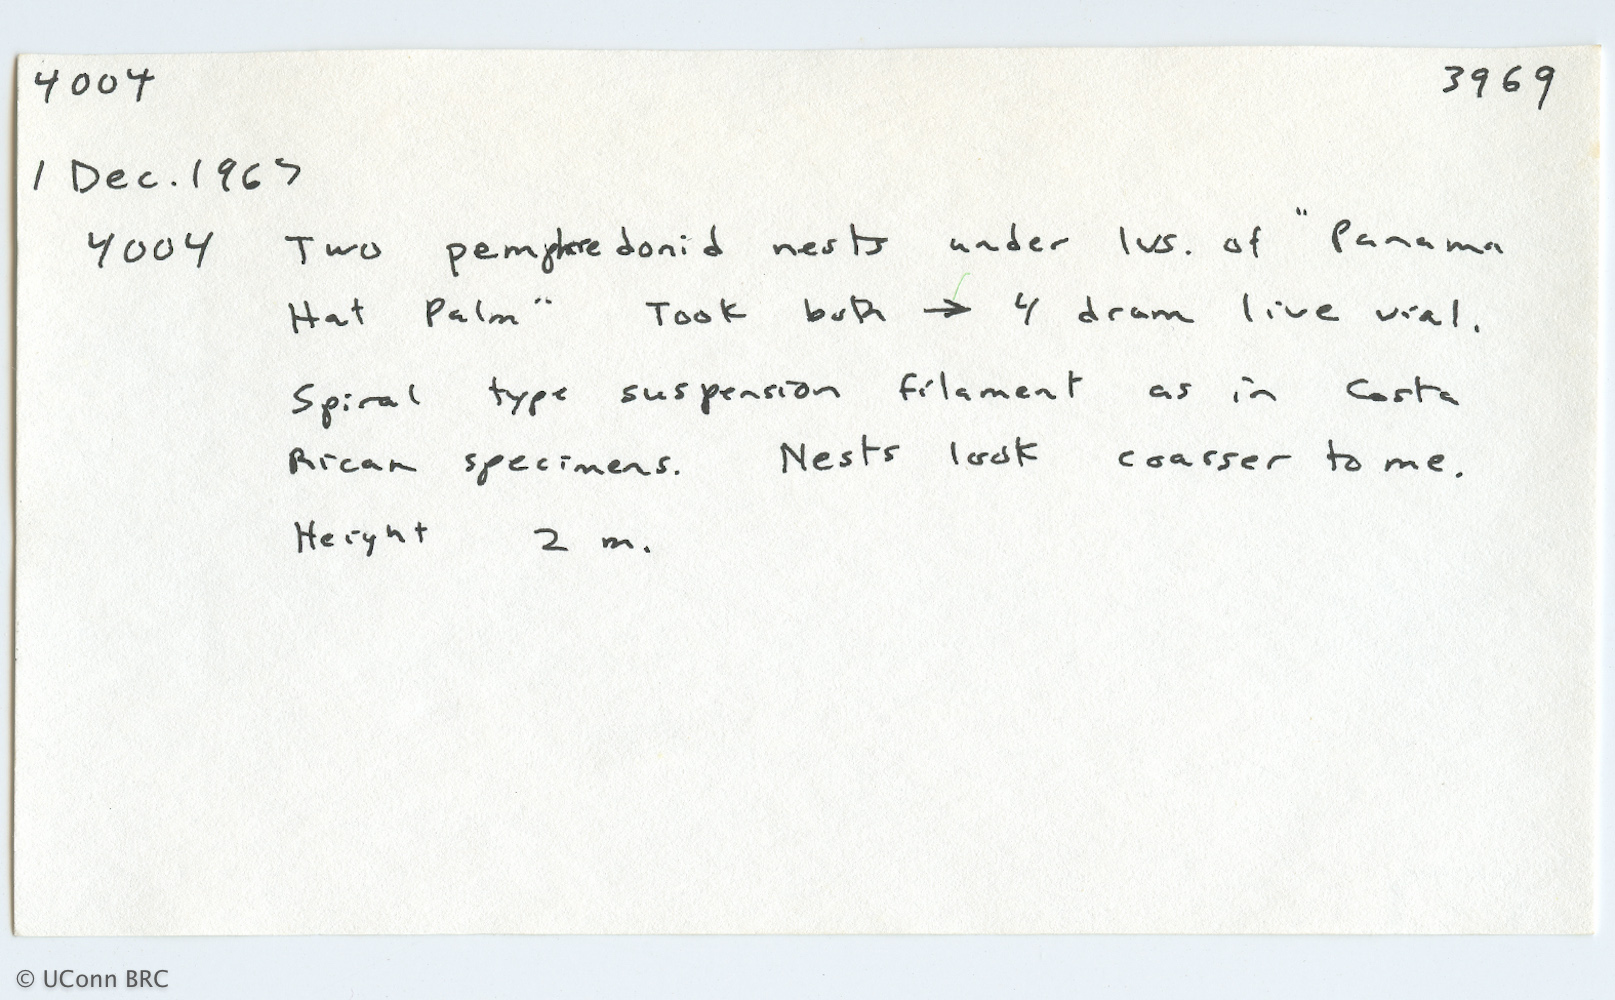 4004 3969
1 Dec. 1967
4004 Two pemphredonid nests under lvs. of "Panama
Hat Palm" Took both → 4 dram live vial.
Spiral type suspension filament as in Costa
Rican specimens. Nests look coarser to me.
Height 2 m.
© UConn BRC